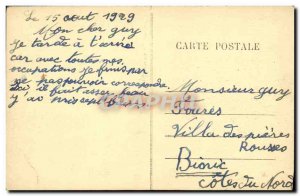 le 15 aout 1929
Mon cher guy
je tarde à t'écrire
car avec toutes mes
occupations je finis par
ne pas pouvoir correspondre
ici il fait assez beau
y'ai
CARTE POSTALE
Monsieur guy
Villa des
Rousses
Binic
Côtes du Nord